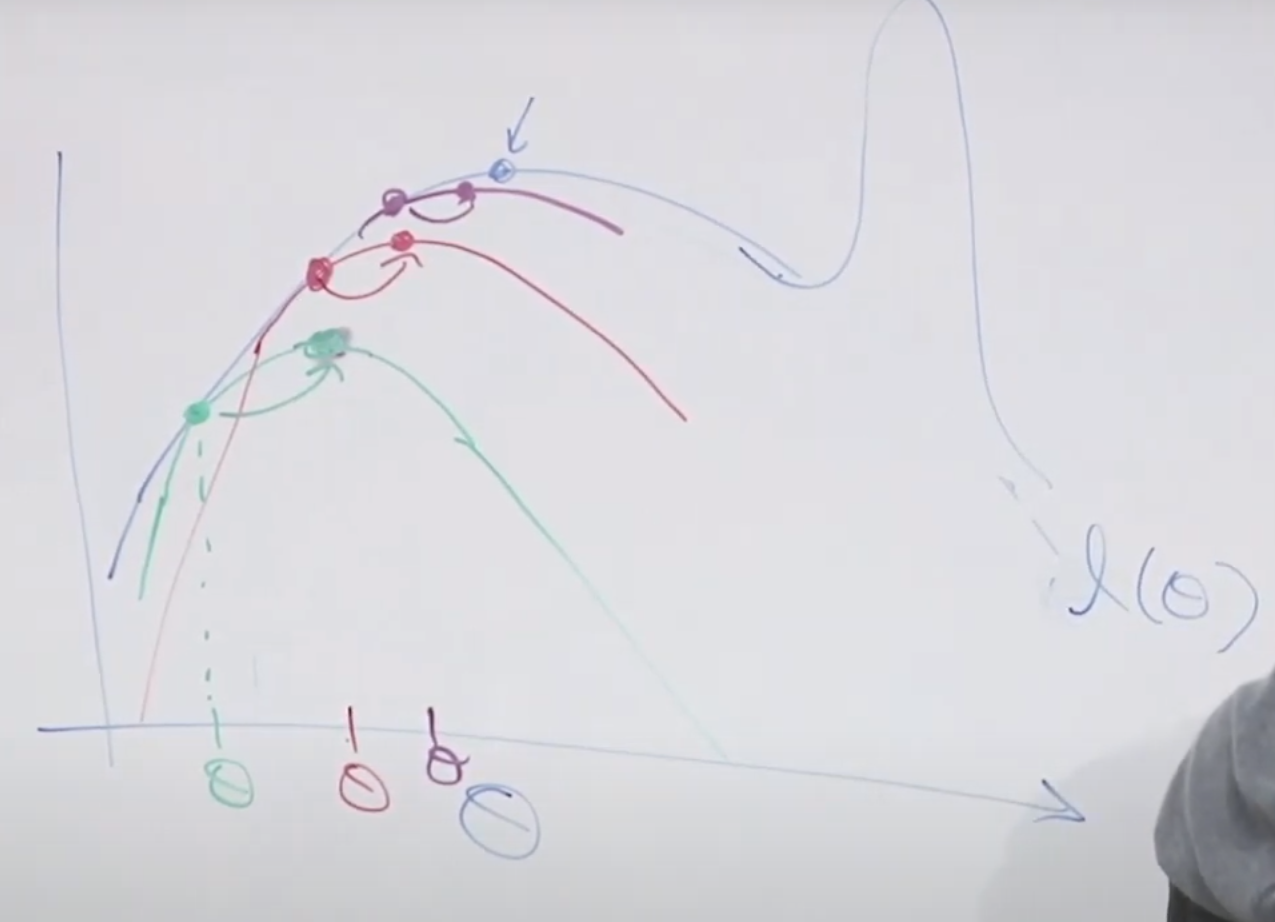 l(θ)
θ θ θ
θ